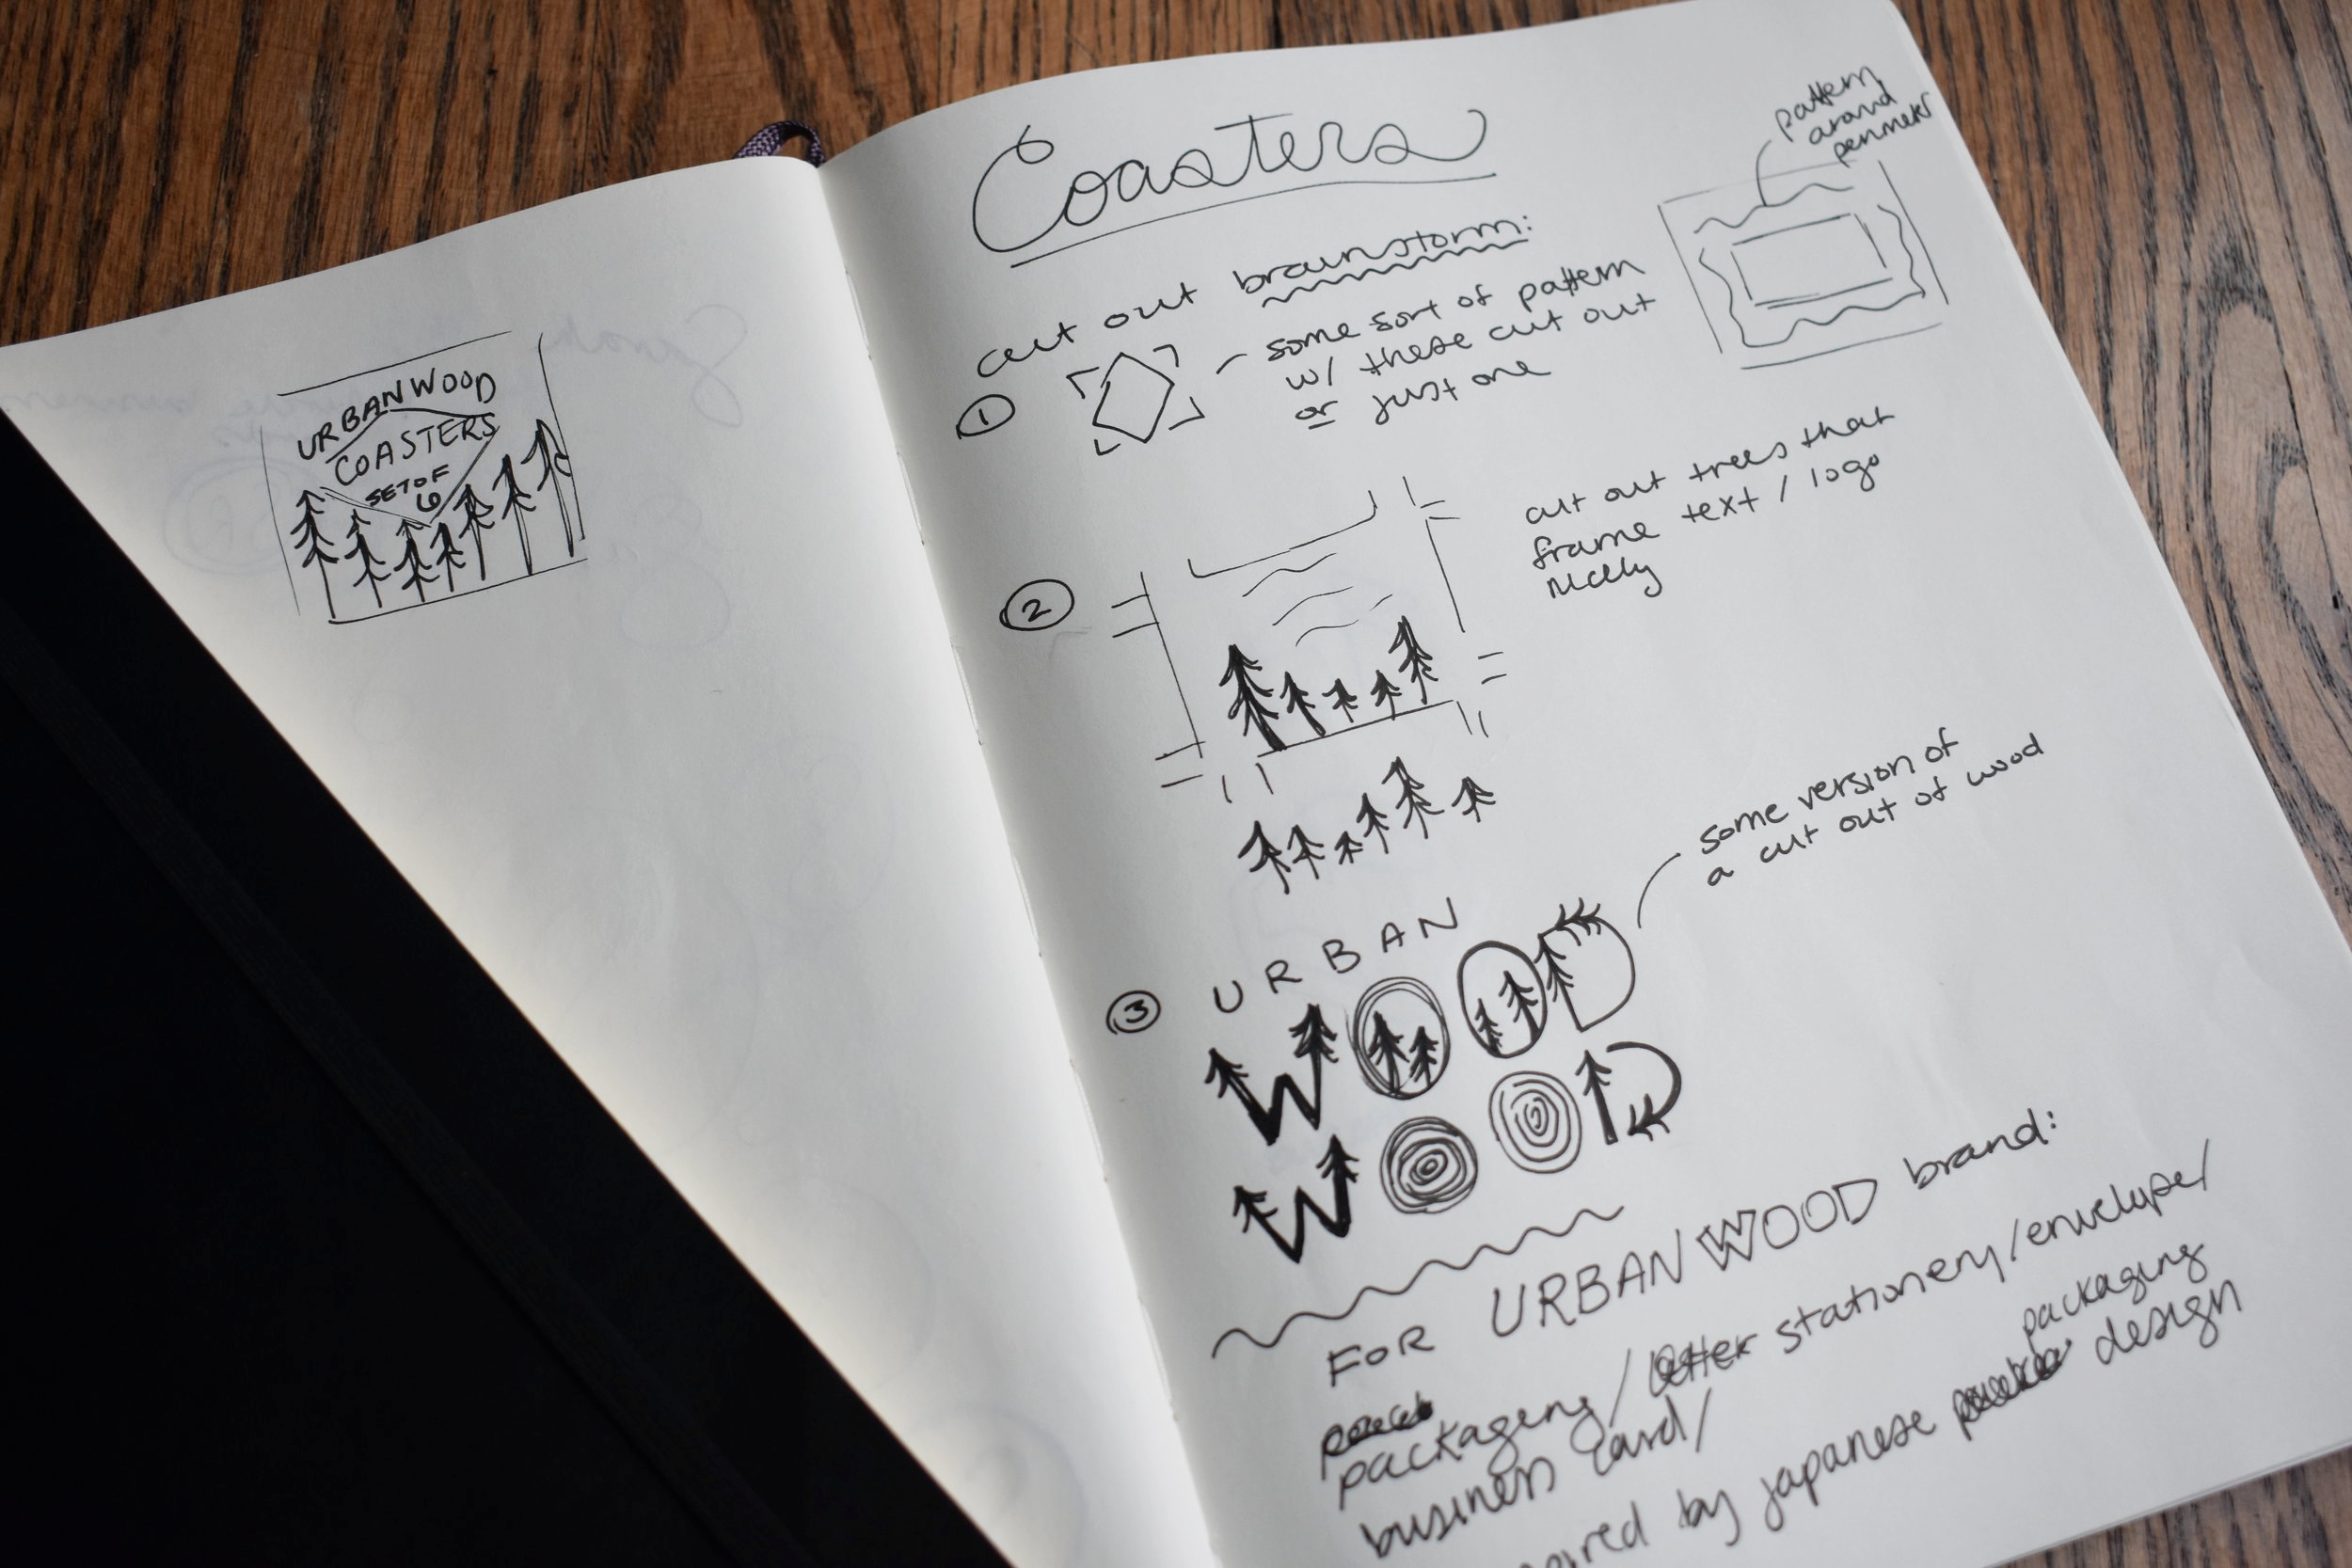 URBAN WOOD
COASTERS
SET OF
6
Coasters
pattern
around
perimeter
cut out brainstorm:
1
some sort of pattern
w/ these cut out
or just one
2
cut out trees that
frame text / logo
nicely
some version of
a cut out of wood
3
URBAN
WOOD
WOOD
FOR URBAN WOOD brand:
packaging / letter stationery / envelope /
business card /
packaging
by japanese design